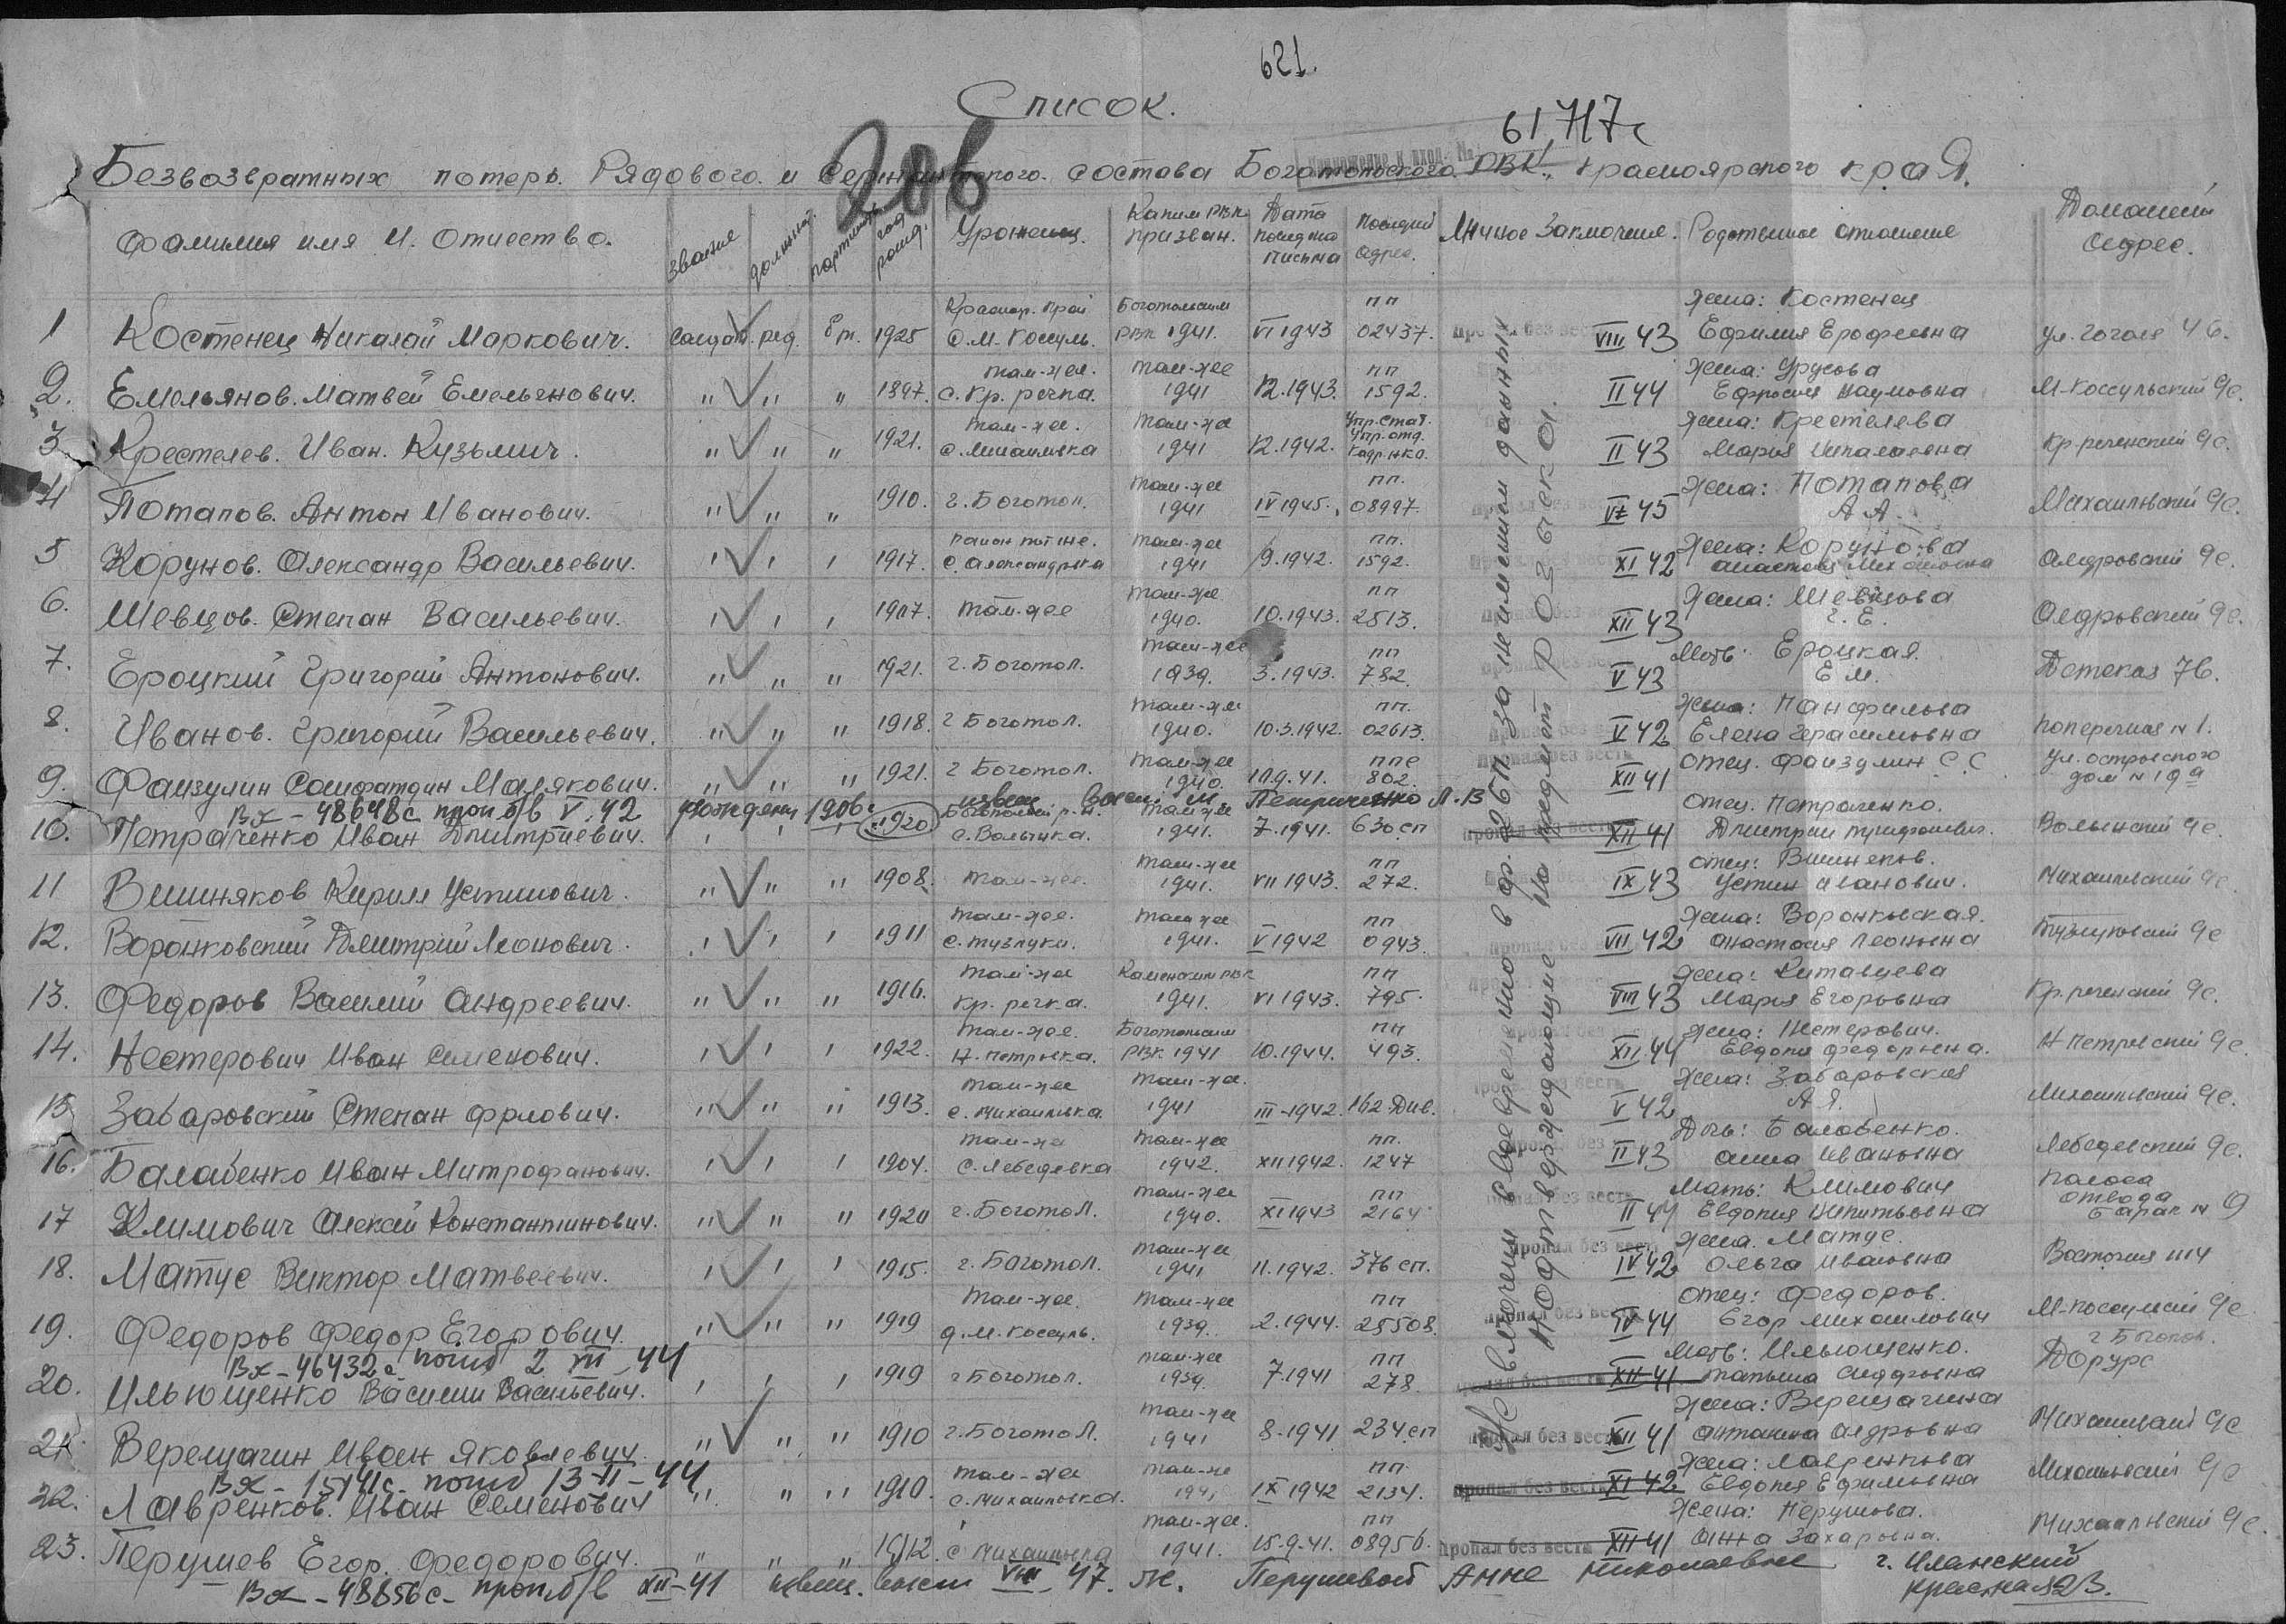 621.
Список.
61717с
206
Безвозвратных потерь. Рядового. и Сержантского. состава Боготольского РВК. Красноярского края.
фамилия имя И. Отчество. звание должност. партийность год рожд. Уроженец. Каким РВК призван. Дата последнего письма последний адрес. Личное Заключение. Родственное отношение Домашний адрес.
1 Костенец Николай Маркович. солдат. ряд. бп. 1925 Краснояр. край с. М. Коссуль. Боготольским РВК 1941. VI 1943 пп 02437. пропал без вести VIII 43 жена: Костенец Ефимия Ерофеевна ул. Гоголя 46.
2. Емельянов. Матвей Емельянович. " " " 1897. там-же. с. Кр. речка. там-же 1941 12.1943. пп 1592. II 44 жена: Урусова Ефросия Наумовна М-Коссульский 9с.
3 Крестелев. Иван. Кузьмич. " " " 1921. там-же. с. Михайловка там-же 1941 12.1942. II 43 жена: Крестелева Мария Николаевна Кр. реченский 9с.
4 Потапов. Антон Иванович. " " " 1910. г. Боготол. там-же 1941 IV 1945. пп. 08997. VI 45 жена: Потапова А А. Михайловский 9с.
5 Корунов. Александр Васильевич. " " " 1917. с. Александровка там-же 1941 9.1942. пп. 1592. XI 42 жена: Корунова Анастасия Михайловна Алдровский 9с.
6. Шевцов. Степан Васильевич. " " " 1907. там-же там-же 1940. 10.1943. пп 2513. XII 43 жена: Шевцова Е. Е. Алдровский 9с.
7. Ероцкий Григорий Антонович. " " " 1921. г. Боготол. там-же 1939. 3.1943. пп 782. V 43 Мать: Ероцкая. Е М. Деповская 76.
8. Иванов. Григорий Васильевич. " " " 1918. г Боготол. там-же 1940. 10.3.1942. пп. 02613. V 42 жена: Панфилова Елена Герасимовна поперечная N 1.
9. Фаизулин Саифатдин Малякович. " " " 1921. г Боготол. там-же 1940. 17.9.41. ппс 802. пропал без вести XII 41 отец. Фаизулин С. С ул. Островского дом N 19а
Вх - 48648с проп б/в V. 42 рождения 1906 г извещ. Петраченко Л. В
10. Петраченко Иван Дмитриевич. " " " 1920 Боготольский р-н. с. Волынка. там-же 1941. 7.1941. 630.сп пропал без вести XII 41 Отец. Петраченко. Дмитрий Волынский 9с.
11 Вишняков Кирилл Устинович. " " " 1908. там-же. там-же 1941. VII 1943. пп 272. IX 43 отец: Вишняков. Устин Иванович. Михайловский 9с.
12. Воронковский Дмитрий Леонович. " " " 1911 там-же. с. Тузлуки. там же 1941. V 1942 пп 0943. VII 42 жена: Воронковская. Анастасия Леоновна Тузлуковский 9с
13. Федоров Василий Андреевич. " " " 1916. там-же Кр. речка. Каменским РВК 1941. VI 1943. пп 795. VIII 43 жена: Китавцева Мария Егоровна Кр. реченский 9с.
14. Нестерович Иван Семенович. " " " 1922. там-же. Н. Петровка. Боготольским РВК 1941 10.1944. пп 493. XII. 44 жена: Нестерович. Евдокия Федоровна. Н Петровский 9с.
15 Забаровский Степан Фролович. " " " 1913. там-же с. Михайловка там-же. 1941 III-1942. 162 Див. V 42 жена: Забаровская А Я. Михайловский 9с.
16. Балабенко Иван Митрофанович. " " " 1904. там-же с. Лебедевка там-же 1942. XII 1942. пп. 1247 II 43 Дочь: Балабенко. Анна Ивановна Лебедевский 9с.
17 Климович Алексей Константинович. " " " 1920 г. Боготол. там-же 1940. XI 1943 пп 2164 II 44 Мать: Климович Евдокия Никитьевна полоса отвода барак N 9
18. Матус Виктор Матвеевич. " " " 1915. г. Боготол. там-же 1941 11.1942. 376 сп. пропал без вести IV 42 жена. Матус. Ольга Ивановна Восточная N 14
19. Федоров Федор Егорович. " " " 1919 там-же. д. М. Коссуль. там-же 1939. 2.1944. пп 25508. IV 44 отец: Федоров. Егор Михайлович М-Коссульский 9с
Вх - 46432с погиб 2 VII 44
20. Ильющенко Василий Васильевич. " " " 1919 г Боготол. там-же 1939. 7.1941 пп 278 пропал без вести XII 41 Мать: Ильющенко. Татьяна г Боготол. Дорурс
21. Верещагин Иван Яковлевич. " " " 1910 г. Боготол. там-же 1941 8-1941 234 сп пропал без вести XII 41 жена: Верещагина Антонина Михайловский 9с
Вх - 15141с погиб 13-II-44
22. Лавренков. Иван Семенович " " " 1910. там-же с. Михайловка. там-же 1941 IX 1942 пп. 2134. пропал без вести XI 42 жена: Лавренкова Евдокия Ефимовна Михайловский 9с
23. Перушев Егор. Федорович. " " " 1912. с Михайловка там-же. 1941. 15-9-41. пп 08956. пропал без вести XII 41 жена: Перушова. Анна Захаровна. Михайловский 9с.
Вх - 48856с - проп. б/в XII-41 извещ. выслан VIII 47. ж. Перушевой Анне Николаевне г. Иланский Красная 23.
Не включены своевременно в ф. 2бп за неимением данных
подтверждающие на предмет розыска.